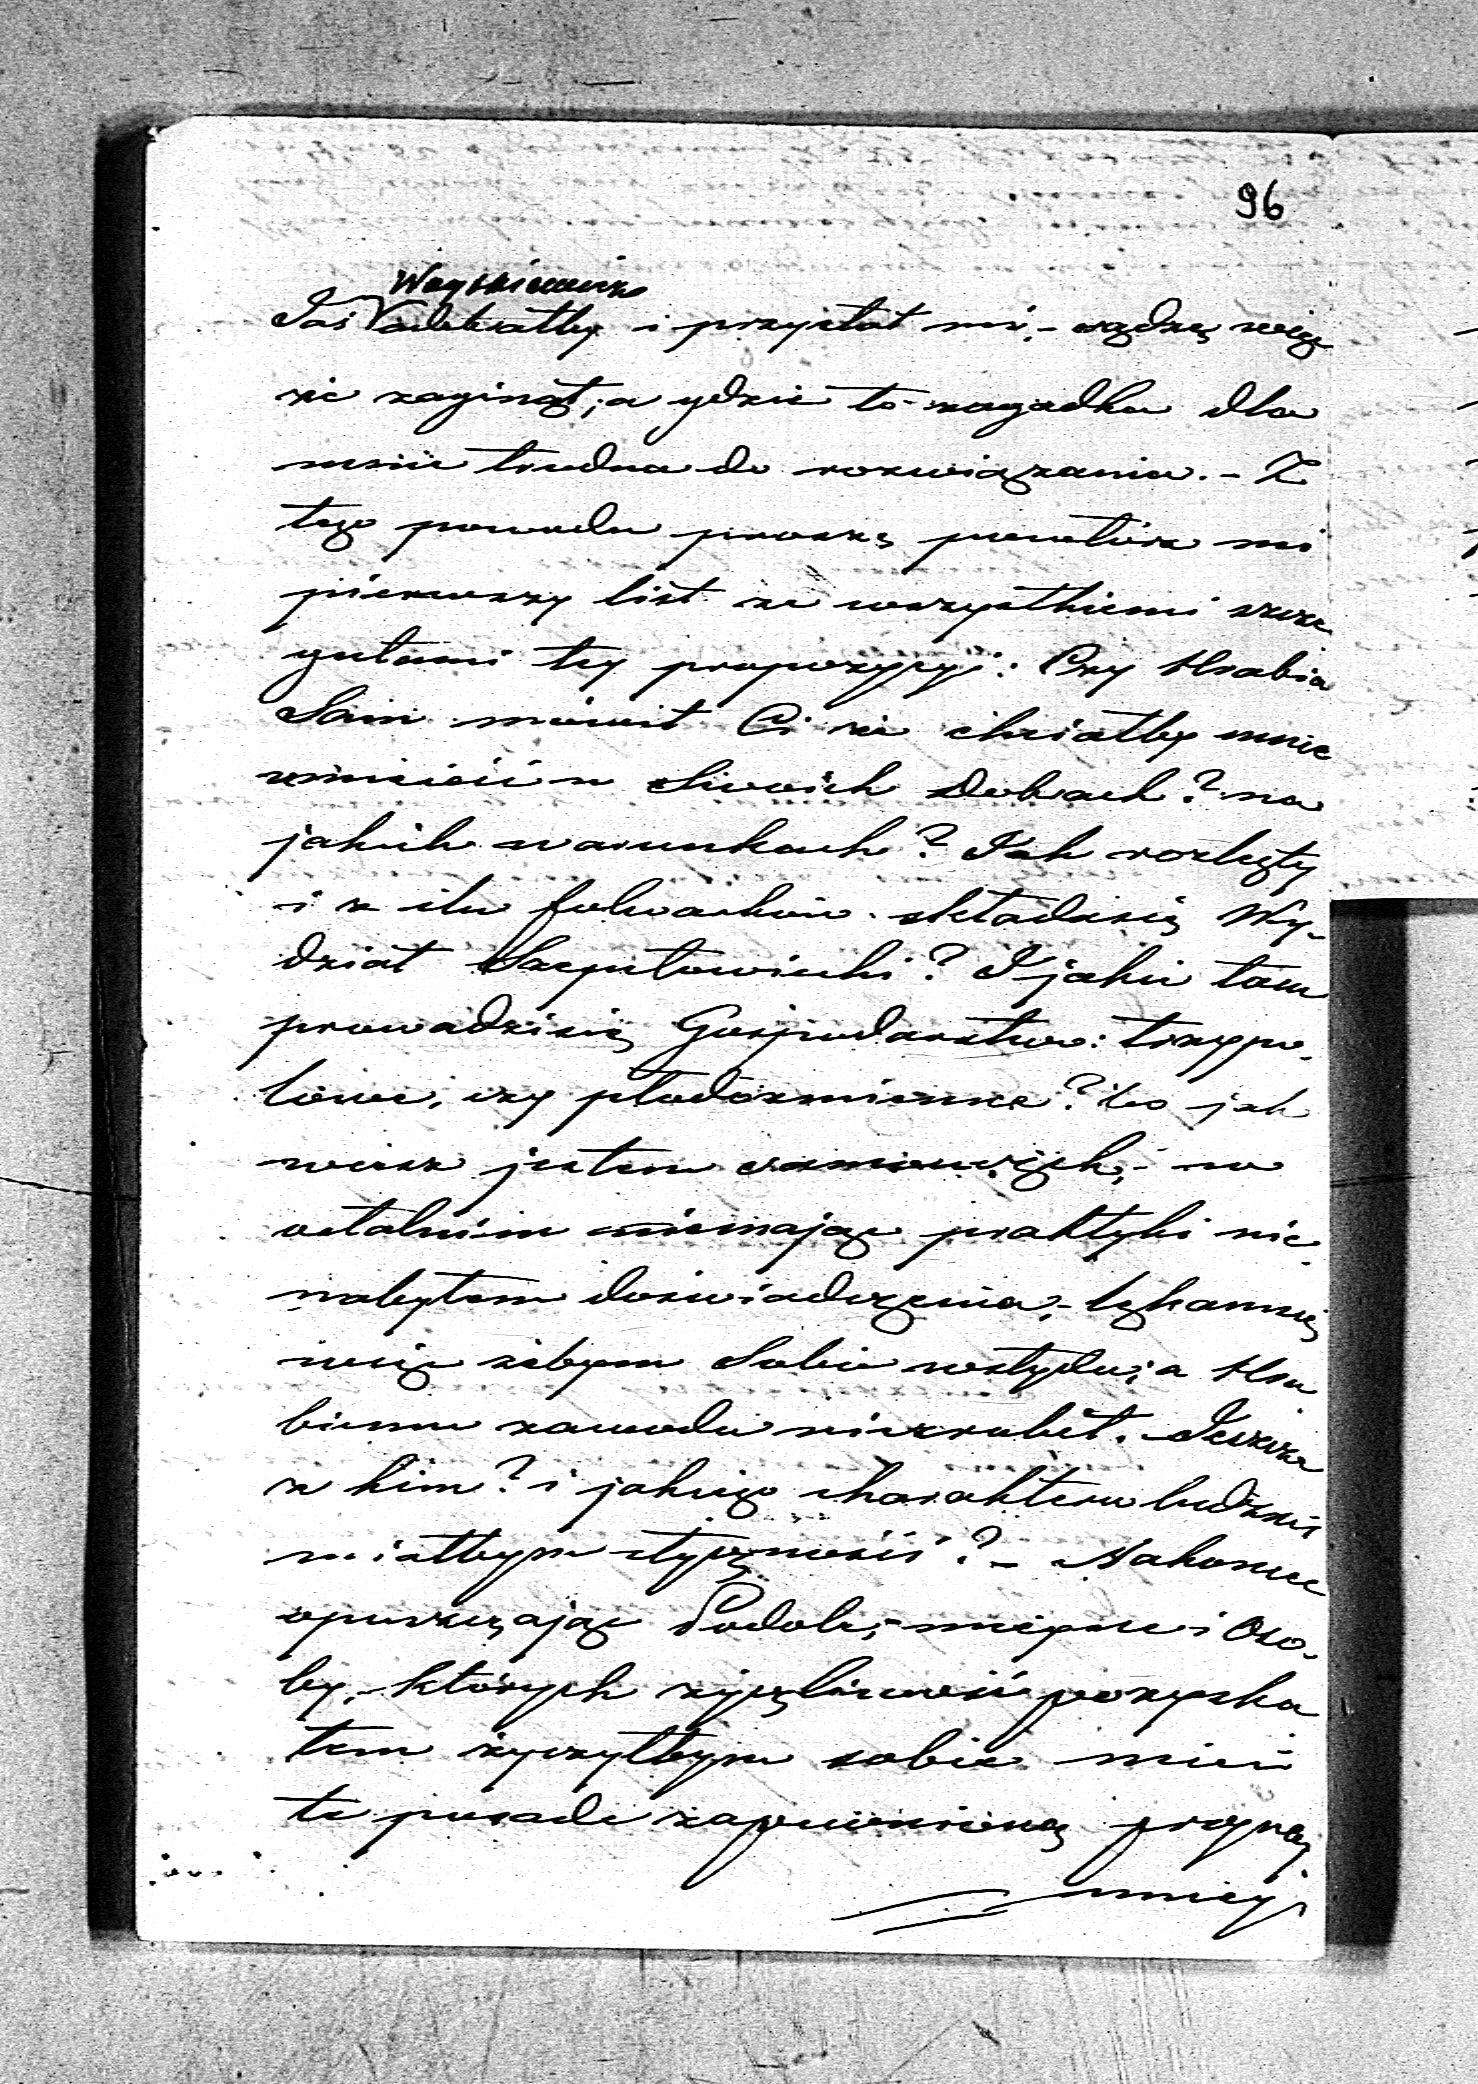 96
Wayszkiewicz
Jaś odebrałby i przysłał mi, – sądzę więc
że zaginął; a gdzie to zagadka dla
mnie trudna do rozwiązania. – Z
tego powodu proszę powtórz mi
pierwszy list ze wszystkiemi szcze
gułami tey propozycyi: Czy Hrabia
Sam mówił Ci że chciałby mnie
umieścić w Swoich Dobrach? na
jakich warunkach? Jak rozległy
i z ilu folwarków składasię Wy-
dział Szepetowiecki? I jakie tam
prowadzisię Gospodarstwo: trzypo-
lowe, czy płodozmienne? bo jak
wiesz jestem w
ostatnim niemając praktyki nie-
nabyłem doświadczenia, – lękamsię
więc żebym Sobie wstydu; a Hra
biemu zawodu niezrobił. Jeszcze
z kim? i jakiego charakteru ludźmi
miałbym styczność? – Nakoniec
opuszczając Podole, – miejsce i Oso-
by, – których życzliwość pozyska
łem życzyłbym sobie mieć
te posade zapewnioną przynaj-
mniey